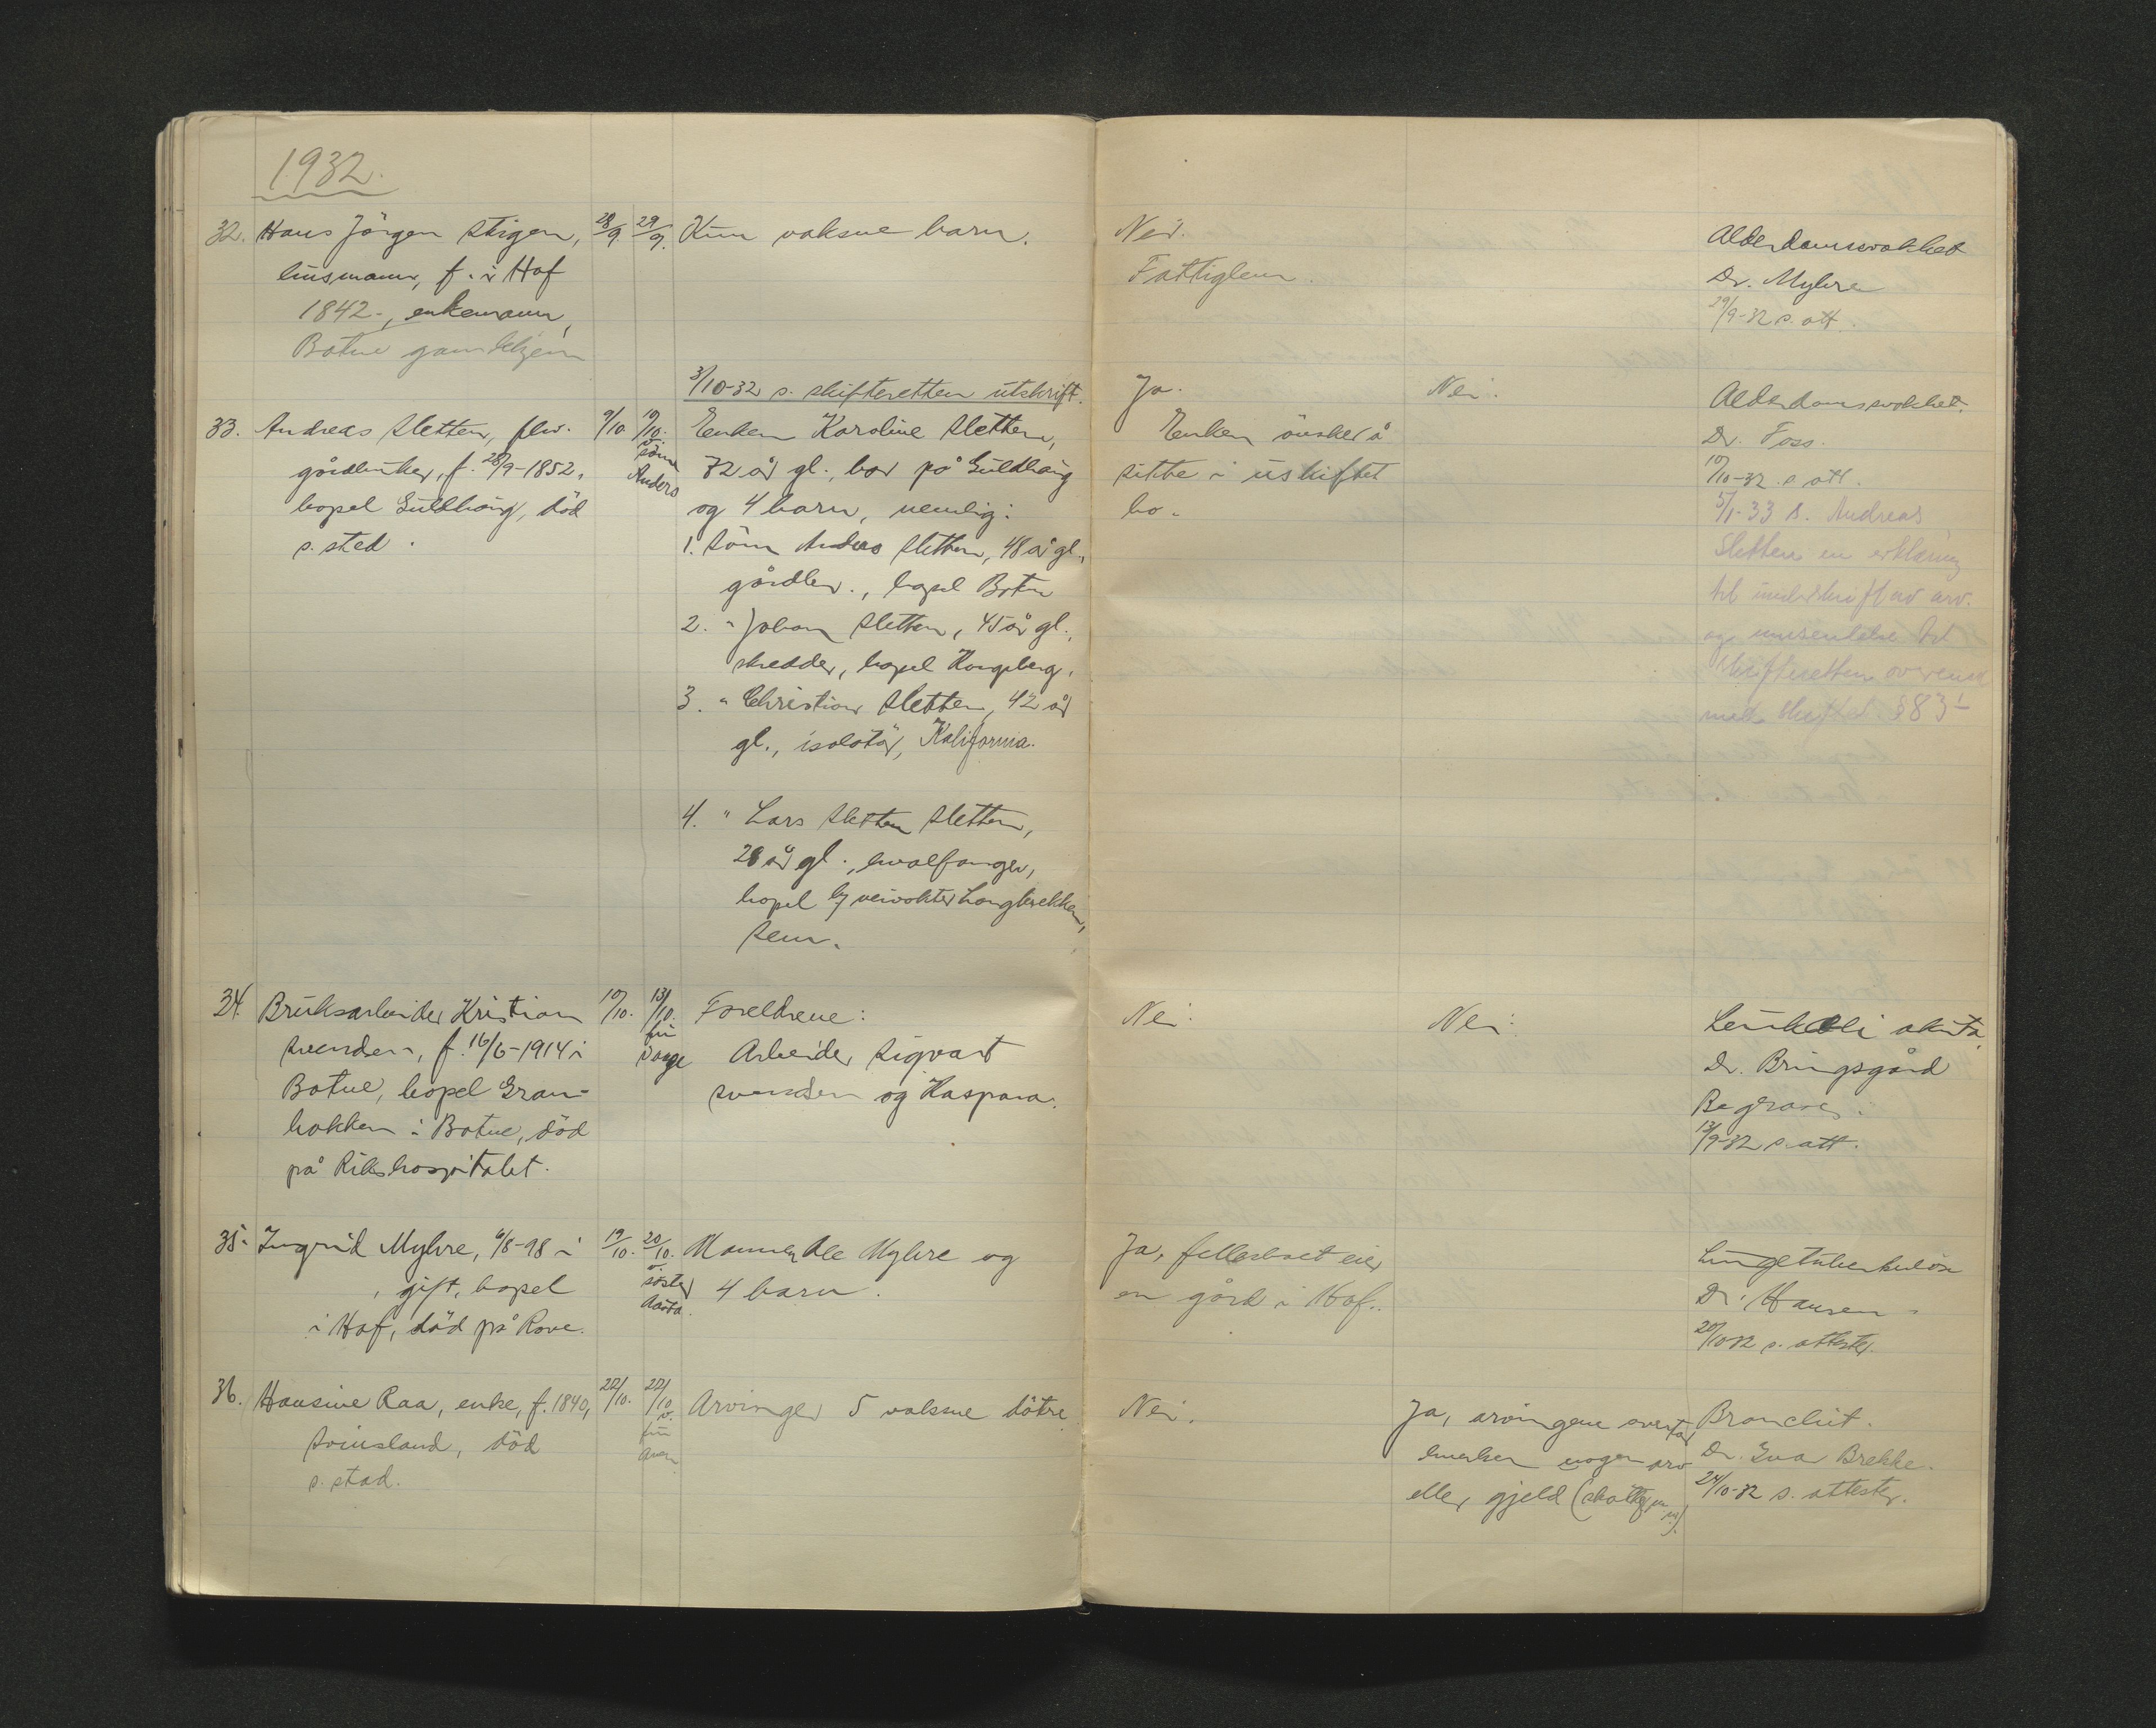 1932.
32. Hans Jörgen Stigen, 28/9 29/9. Kun voksne barn. Nei. Alderdomssvakhet
husmann, f. i Hof Fattiglem. Dr. Myhre
1842-, enkemann, 29/9-32 s. att.
Botne gamlehjem
3/10-32 s. skifteretten utskrift. Ja. Nei. Alderdomssvakhet.
33. Andreas Sletten, flv. 9/10 10/10. Enken Karoline Sletten, Enken önsker å Dr. Foss.
gårdbruker, f. 28/9-1852, v. sönn 72 år gl., bor på Guldhaug sitte i uskiftet 10/10-32 s. att.
bopel Guldhaug, död Anders og 4 barn, nemlig: bo. 5/1-33 s. Andreas
s. sted. 1. Sönn Anders Sletten, 48 år gl., Sletten en erklæring
gårdbr., bopel Botne til underskrift av arv.
2. " Johan Sletten, 45 år gl., og innsendelse til
skredder, bopel Kongsberg. skifteretten overens
3. " Christian Sletten, 42 år med skiftel. § 83
gl., isolatör, Kalifornia.
4. " Lars Sletten Sletten,
28 år gl., hvalfanger,
bopel h/ veivokter Langbrekken,
Sem.
34. Bruksarbeider Kristian 10/10. 13/10. Foreldrene: Nei. Nei. Leukoli akuta
Svendsen, f. 16/6-1914 i fru Arbeider Sigvart Dr. Bringsgård
Botne, bopel Gran- Svendsen og Kaspara. Begraves.
bakken i Botne, död 13/9-32 s. att.
på Rikshospitalet.
35. Ingrid Myhre, 6/8-98 i 19/10. 20/10. Mannen Ole Myhre og Ja, fellesboet eier Lungetuberkulose
, gift, bopel v. söster 4 barn. en gård i Hof. Dr. Hansen
i Hof, död på Rove. Aasta. 20/10-32 s. attester.
36. Hansine Raa, enke, f. 1840, 22/10. 22/10 Arvinger 5 voksne dötre. Nei. Ja, arvingene overtar Bronchit.
Svinsland, död v. fru hverken nogen arv Dr. Eva Brekke.
s. stad. eller gjeld (skatter m m). 24/10-32 s. attester.